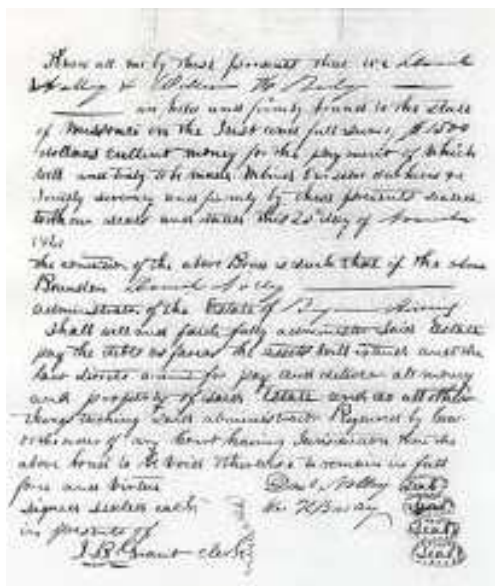 Know all men by these presents that we Daniel
Holley & William H
are held and firmly bound to the State
of Missouri in the Just and full sum of $1500
dollars current money for the payment of which
will and truly to be made We bind our selves our heirs &
Jointly severly and firmly by these presents sealed
with our seals and dated this 20 day of November
The condition of the above Bond is such that if the above
Bounden Daniel Holley
administrator of the Estate of
Shall well and faithfully administer Said Estate
pay the debts as far as the assets will extend and the
law directs account for pay and deliver all money
and property of Said Estate and do all other
things touching Said administration Required by law
or the order of any Court having Jurisdiction then the
above bond to be Void Otherwise to remain in full
force and virtue
Danl Holley Seal
signed sealed
Wm H Seal
in presents of
Seal
J. R. Grant Clerk
Seal